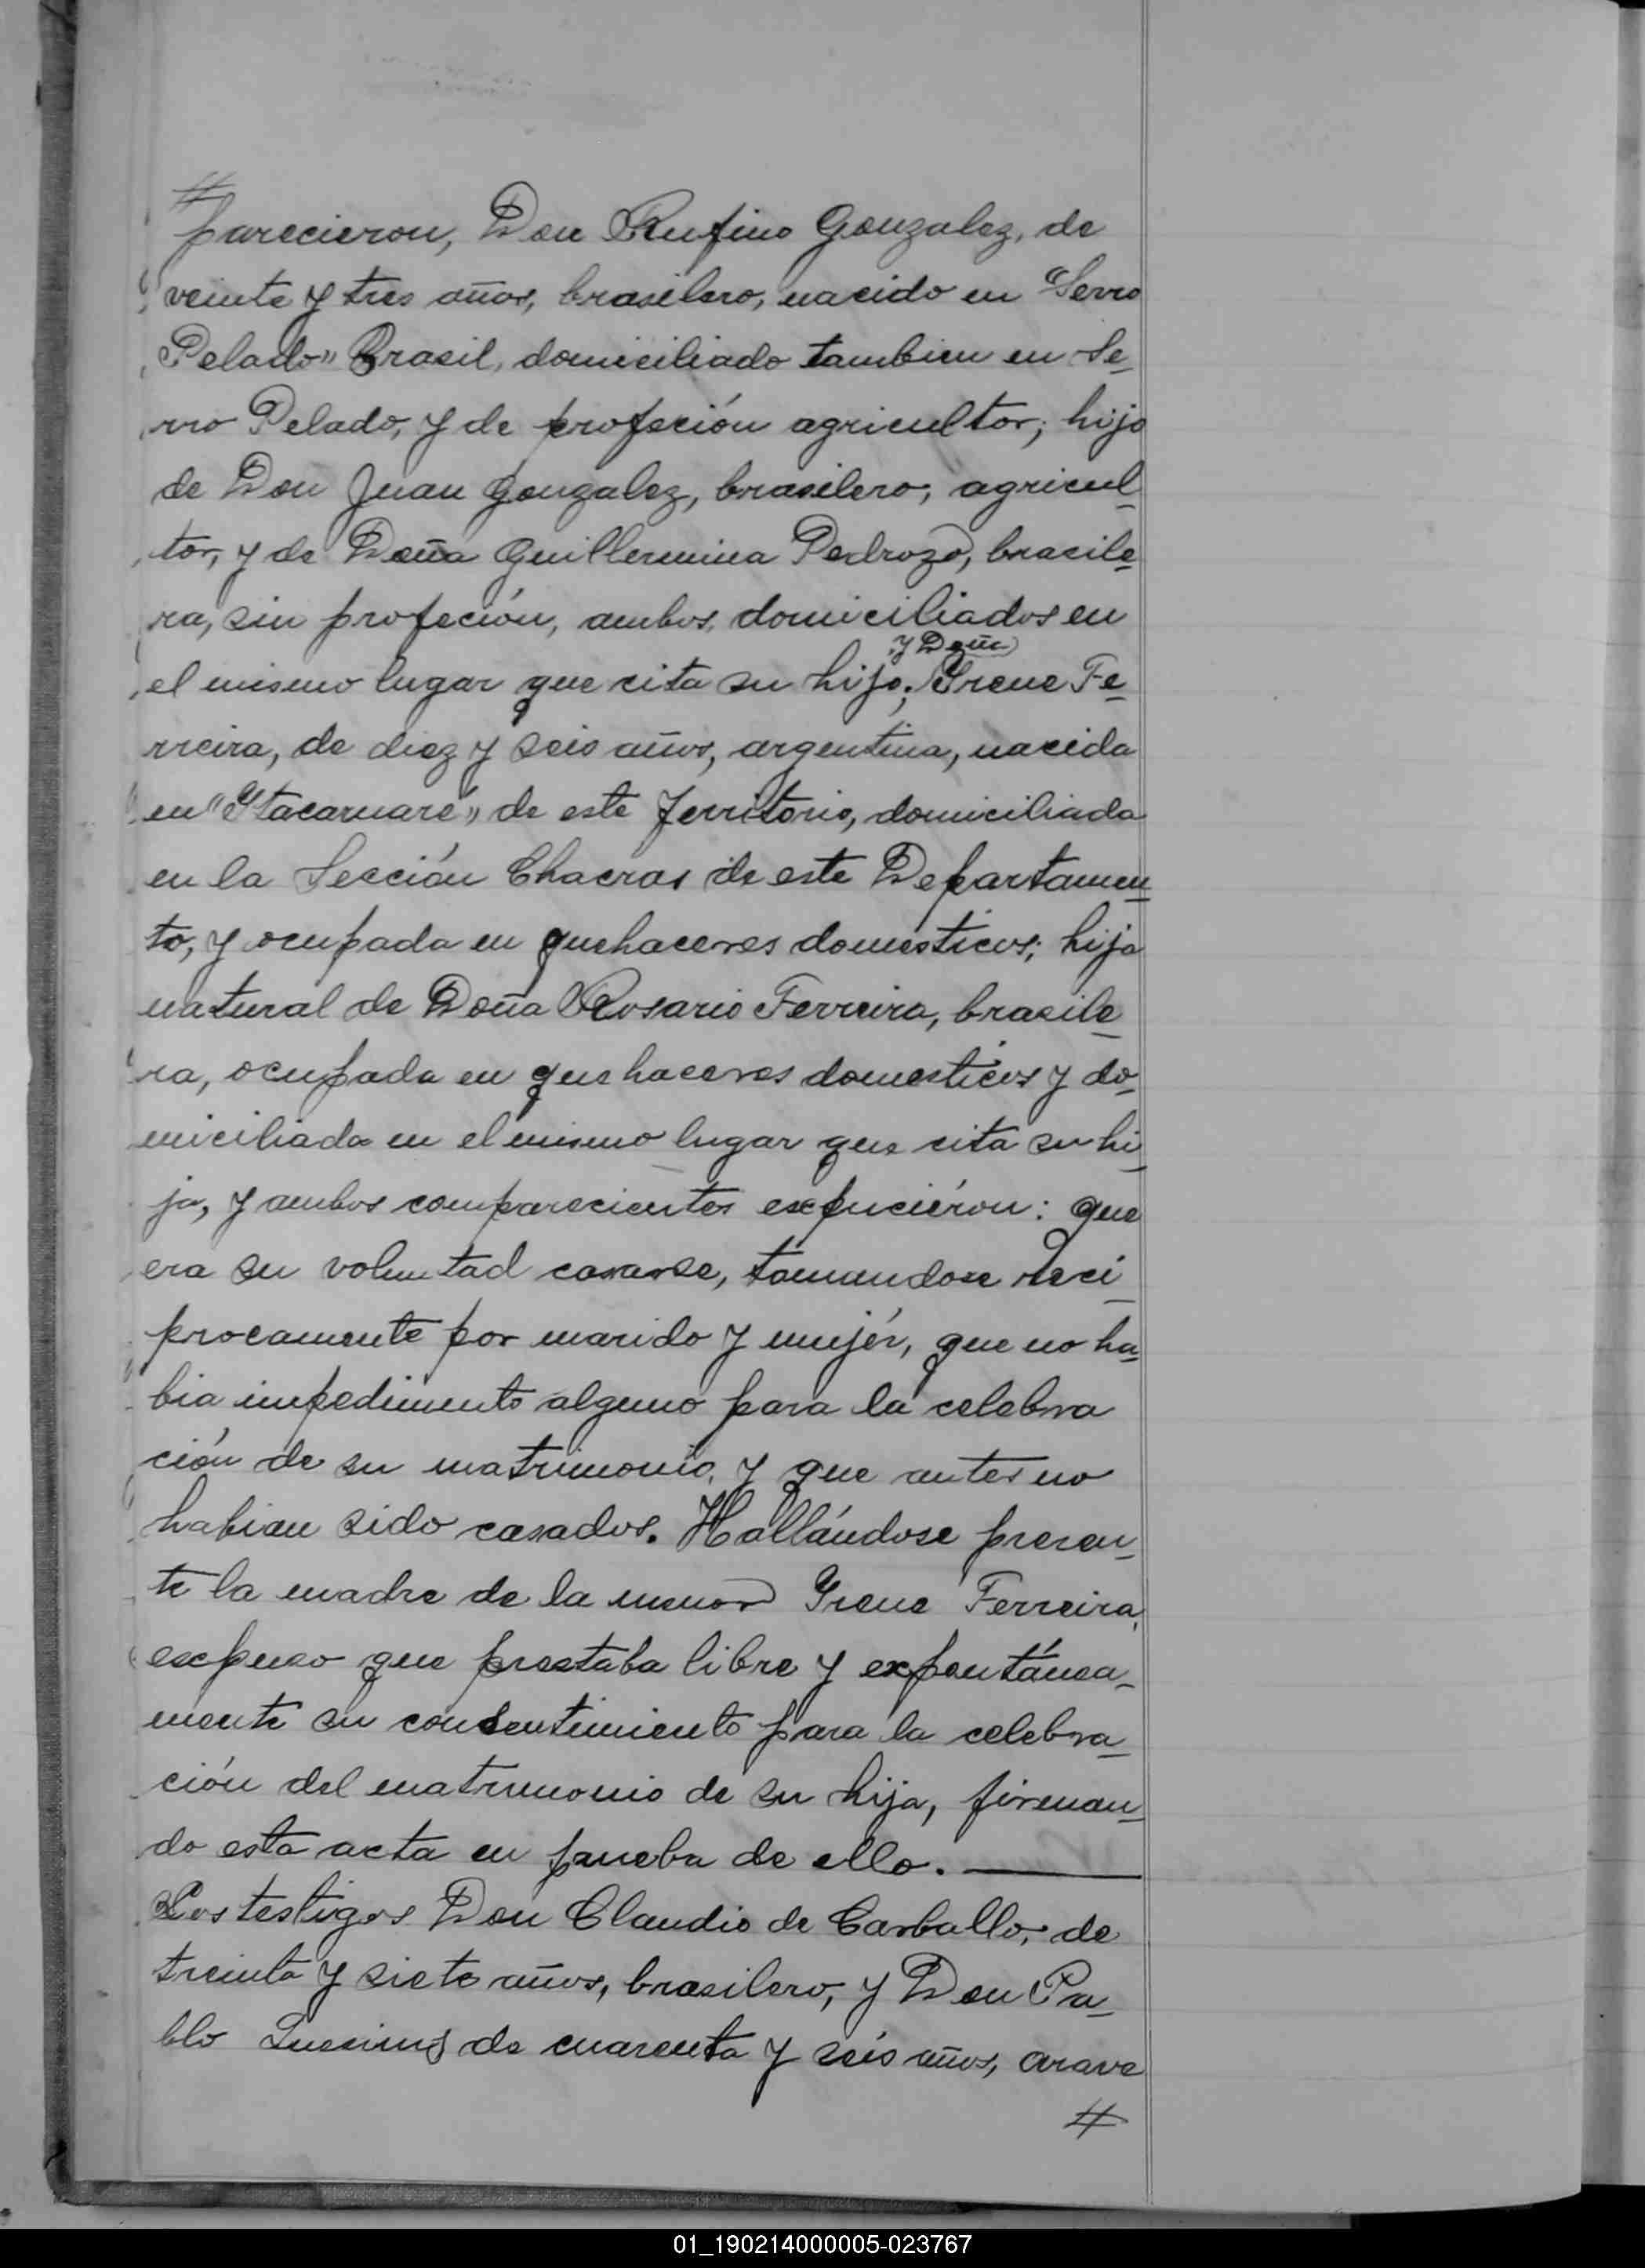 #
parecieron, Don Rufino Gonzalez, de
veinte y tres años, brasilero, nacido en "Serro
Pelado" Brasil, domiciliado tambien en Se-
rro Pelado, y de profeción agricultor; hijo
de Don Juan Gonzalez, brasilero, agricul-
tor, y de Doña Guillermina Pedrozo, brasile-
ra, sin profeción, ambos domiciliados en
y Doña
el mismo lugar que cita su hijo; Yrene Fe-
rreira, de diez y seis años, argentina, nacida
en "Ytacaruaré" de este Territorio, domiciliada
en la Sección Chacras de este Departamen-
to, y ocupada en quehaceres domesticos; hija
natural de Doña Rosario Ferreira, brasile-
ra, ocupada en quehaceres domesticos y do-
miciliada en el mismo lugar que cita su hi-
ja, y ambos comparecientes expuciéron: que
era su voluntad casarse, tomandose reci-
procamente por marido y mujér, que no ha-
bia impedimento alguno para la celebra
ción de su matrimonio, y que antes no
habian sido casados. Hallándose presen-
te la madre de la menor Yrene Ferreira,
expuso que prestaba libre y expontánea-
mente su consentimiento para la celebra-
ción del matrimonio de su hija, firman-
do esta acta en prueba de ello.
Los testigos Don Claudio de Carballo, de
treinta y siete años, brasilero, y Don Pa-
blo de cuarenta y seis años, arave
#
01_190214000005-023767